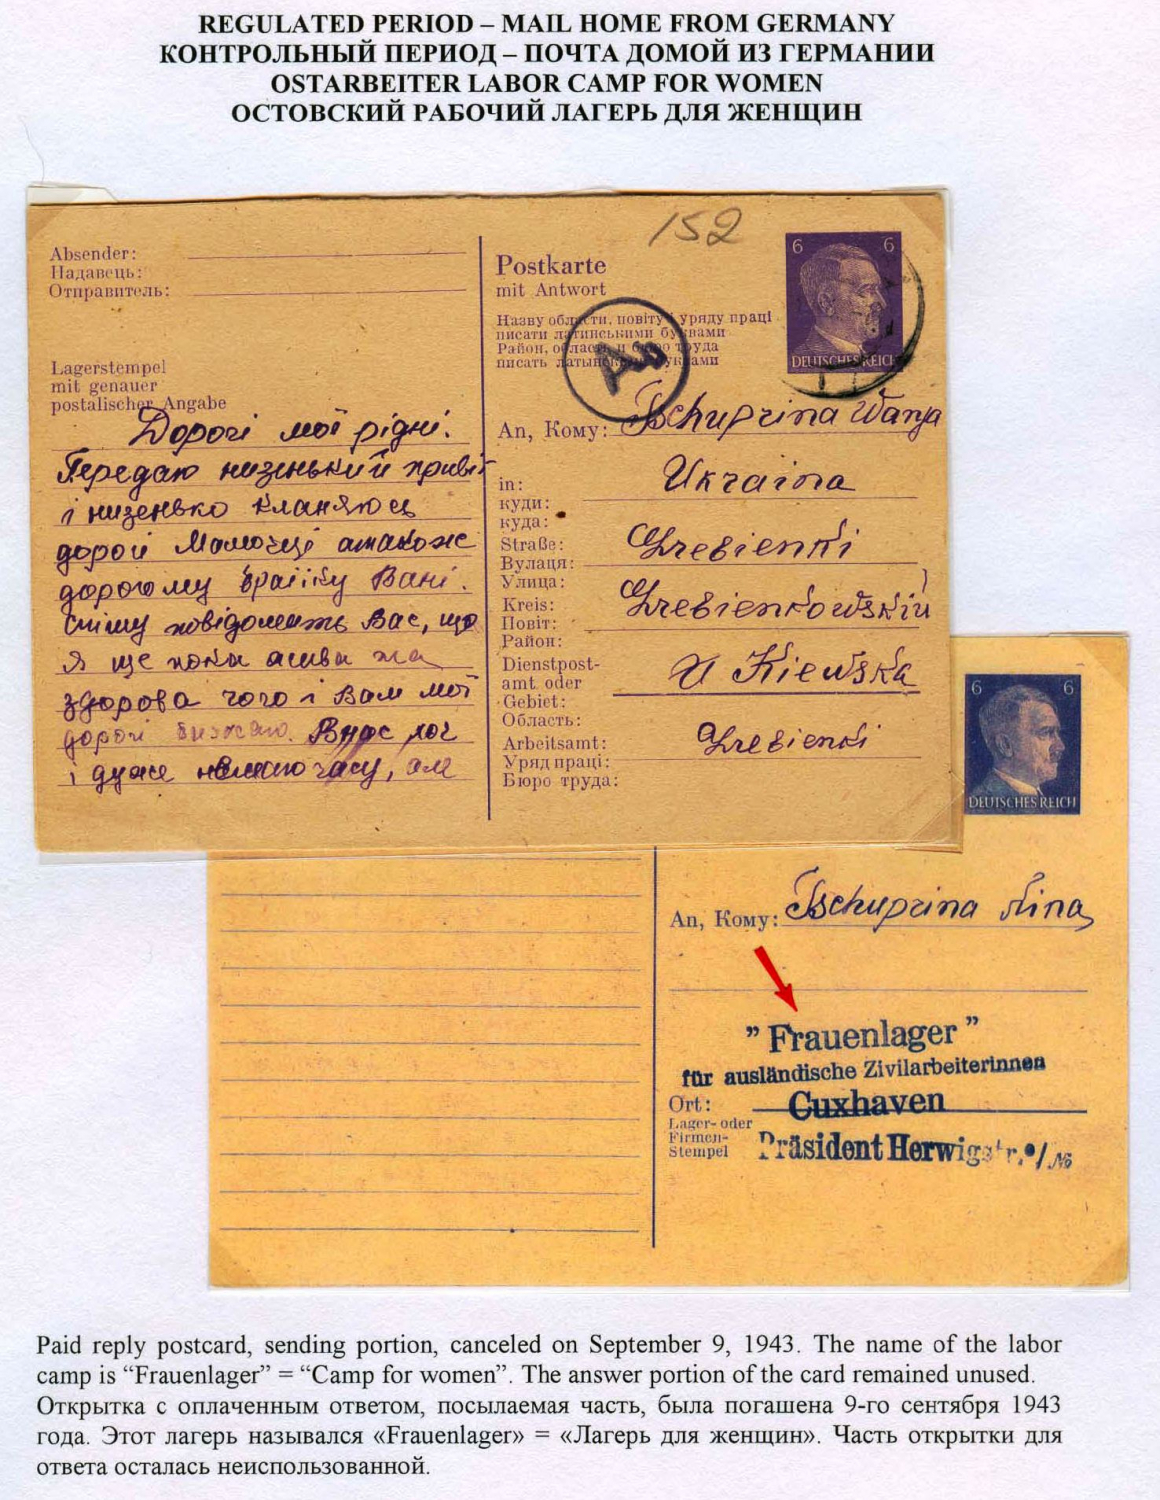 REGULATED PERIOD – MAIL HOME FROM GERMANY
КОНТРОЛЬНЫЙ ПЕРИОД – ПОЧТА ДОМОЙ ИЗ ГЕРМАНИИ
OSTARBEITER LABOR CAMP FOR WOMEN
ОСТОВСКИЙ РАБОЧИЙ ЛАГЕРЬ ДЛЯ ЖЕНЩИН
Absender:
Надавець:
Отправитель:
Lagerstempel
mit genauer
postalischer Angabe
Дорогі мої рідні.
Передаю низенький привіт
і низенько кланяюсь
дорогій Мамочці атакоже
дорогому братіку Вані.
Спішу повідомить Вас, що
я ще поки жива та
здорова чого і Вам мої
дорогі бажаю.
і дуже немаю часу, але
152
Postkarte
mit Antwort
Назву області, повіту і уряду праці
писати латинськими буквами
Район, область и бюро труда
писать латынскими буквами
6 6
DEUTSCHES REICH
An, Кому: Tschuprina Wanja
in: Ukraina
куди:
куда:
Straße: Grebienki
Вулаця:
Улица:
Kreis: Grebienkowskiu
Повіт:
Район:
Dienstpost-
amt oder U Kiewska
Gebiet:
Область:
Arbeitsamt: Grebienki
Уряд праці:
Бюро труда:
6 6
DEUTSCHES REICH
An, Кому: Tschuprina Nina
" Frauenlager "
für ausländische Zivilarbeiterinnen
Ort: Cuxhaven
Lager- oder
Firmen-
Stempel
Präsident Herwigstr.
Paid reply postcard, sending portion, canceled on September 9, 1943. The name of the labor
camp is “Frauenlager” = “Camp for women”. The answer portion of the card remained unused.
Открытка с оплаченным ответом, посылаемая часть, была погашена 9-го сентября 1943
года. Этот лагерь назывался «Frauenlager» = «Лагерь для женщин». Часть открытки для
ответа осталась неиспользованной.